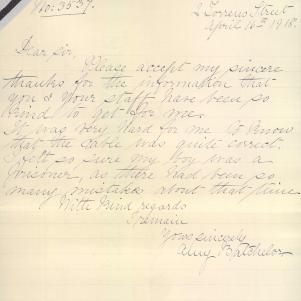 No: 3537.
2 Torrens Street
April 16th 1918.
Dear Sir,
Please accept my sincere
thanks for the information that
you & your staff have been so
kind to get for me.
It was very hard for me to know
that the cable was quite correct.
I felt so sure my boy was a
prisoner, as there had been so
many mistakes about that time
With kind regards
I remain
Yours sincerely
Amy Batchelor